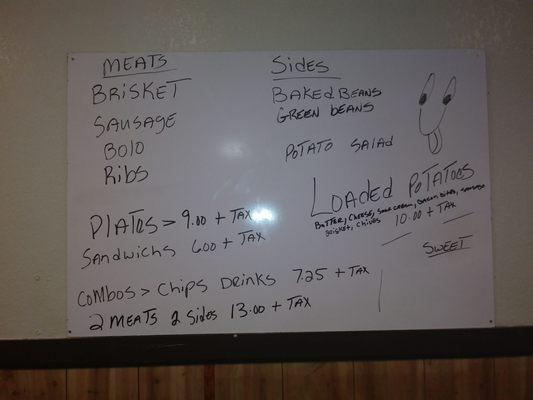 MEATS
BRISKET
SAUSAGE
BOLO
RIBS
Sides
BAKED BEANS
GREEN beans
POTATO SALAD
LOADED POTATOES
BUTTER, CHEESE, SOUR CREAM, BACON BITES, SAUSAGE
BRISKET, CHIVES 10.00 + TAX
SWEET
PLATOS > 9.00 + TAX
SANDWICHS 6.00 + TAX
COMBOS > CHIPS DRINKS 7.25 + TAX
2 MEATS 2 Sides 13.00 + TAX